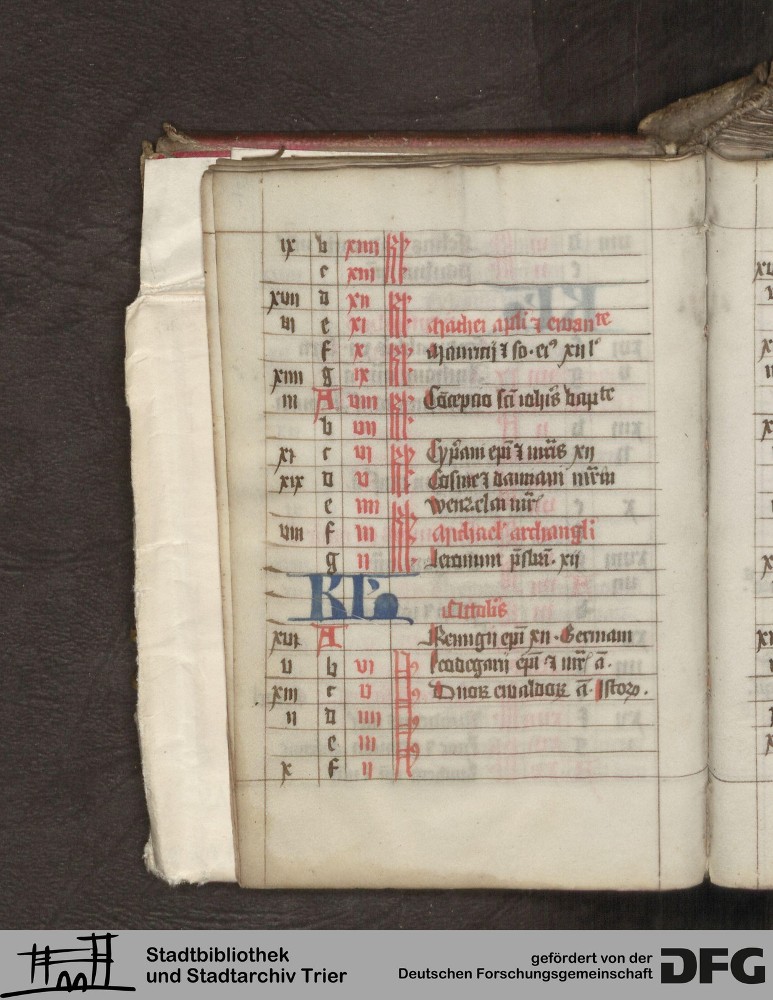 ix b xiiii kl
c xiii kl
xvii d xii kl
vi e xi kl Mathei apli ⁊ ewante
f x kl Mauricij ⁊ so. eiꝰ xii l
xiiii g ix kl
iii A viii kl Cōcepcio scī iohīs bapte
b vii kl
xi c vi kl Cyp̄ani ep̄i ⁊ mr̄is xij
xix d v kl Cosme ⁊ damiani mr̄m
e iiii kl wenzelai mr̄
viii f iii kl Michael archangeli
g ii kl Jeronimi p̄sbri. xij
KL Octobris
xvi A Remigij ep̄i xij. Germani
v b vi N leodegarij ep̄i ⁊ mr̄ ā.
xiii c v N Duoꝝ ewaldoꝝ ā.
ii d iiii N
e iii N
x f ii N
Stadtbibliothek
und Stadtarchiv Trier
gefördert von der
Deutschen Forschungsgemeinschaft
DFG